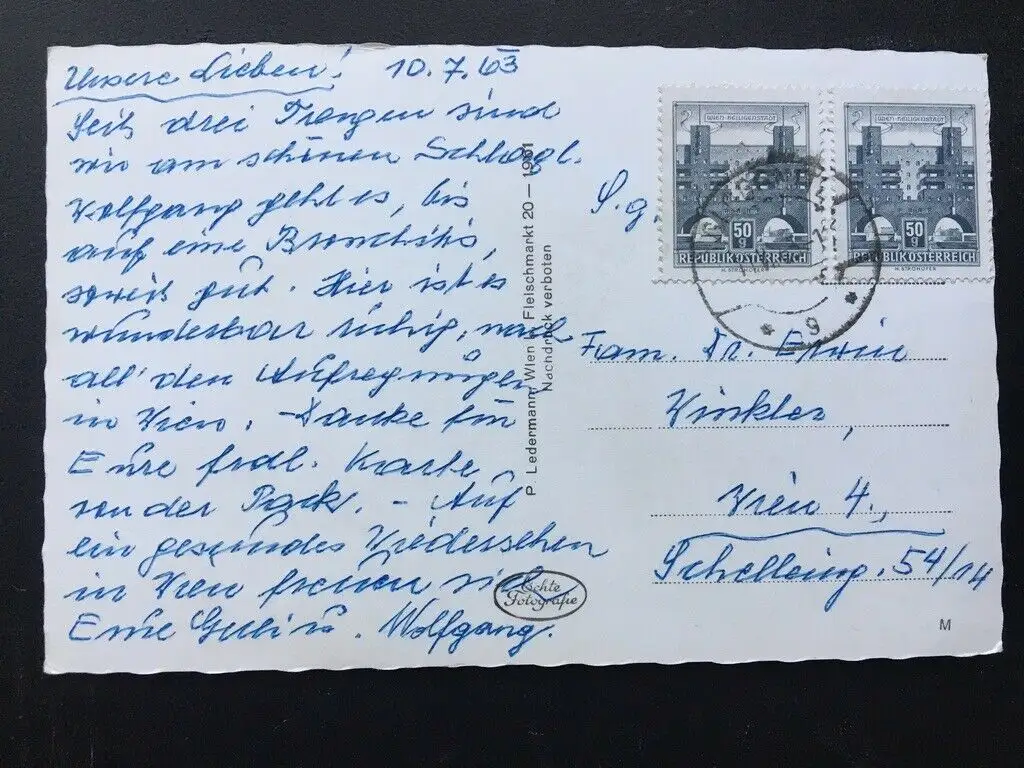 Unsere Lieben! 10.7.63
Seit drei Tagen sind
wir am schönen Schlögl.
Wolfgang geht es, bis
auf eine Bronchitis,
soweit gut. Hier ist es
wunderbar ruhig, nach
all' den Aufregungen
in Wien. - Danke für
Eure frdl. Karte
von der Pack. - Auf
ein gesundes Wiedersehen
in Wien freuen sich
Eure Wolfgang.
P. Ledermann, Wien I, Fleischmarkt 20 — 1901
Nachdruck verboten
Echte
Fotografie
S.g.
WIEN-HEILIGENSTADT
50
g
REPUBLIK ÖSTERREICH
H. STROHOFER
WIEN-HEILIGENSTADT
50
g
REPUBLIK ÖSTERREICH
H. STROHOFER
* g *
Fam. Dr. Erwin
Winkler,
Wien 4.,
Schelleing. 54/14
M